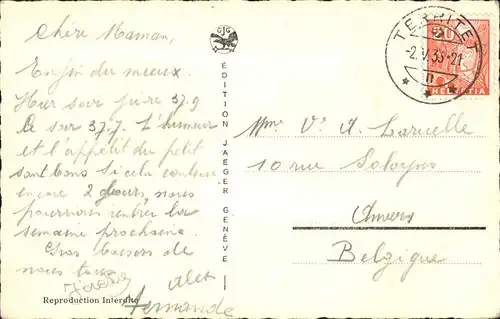 Chère Maman,
Enfin du mieux.
Hier soir fièvre 37.9
Ce soir 37.7. L'humeur
et l'appétit du petit
sont bons. Si cela continue
encore 2 jours, nous
pourrions rentrer la
semaine prochaine
Gros baisers de
nous tous
Fernande
Reproduction Interdite
EDITION JAEGER GENÈVE
TERRITET
-2.V.35-21
20
HELVETIA
Mme Vve A. Larcelle
10 rue
Anvers
Belgique